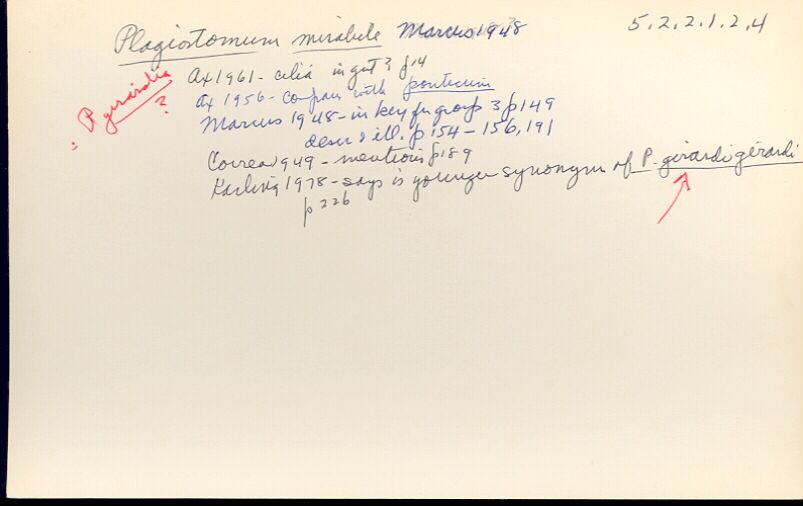 Plagiostomum mirabile Marcus 1948
5.2.2.1.2.4
= P girardia
?
Ax 1961 - cilia in gut? p14
Ax 1956 - compares with ponticum
Marcus 1948 - in key fn group 3 p149
descr & ill. p154 - 156, 191
Correa 1949 - mentions p189
Karling 1978 - says is younger synonym of P. girardi girardi
p226